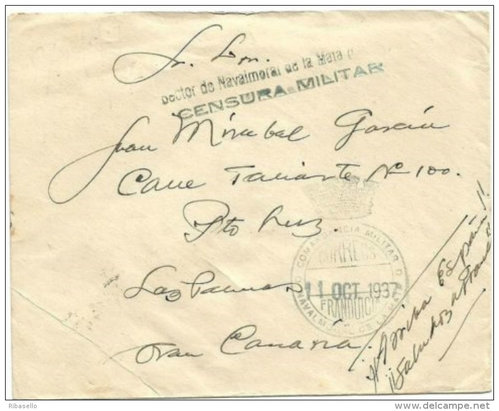 Sr. Don.
Sector de Navalmoral de la Mata
CENSURA MILITAR
Juan Mirabal García
Calle Tariarte Nº 100.
Pto Luz.
Las Palmas
Gran Canaria.
COMANDANCIA MILITAR D
CORREOS
11 OCT 1937
FRANQUICIA
¡¡Arriba España!!
© Ribasello
delcampe.net